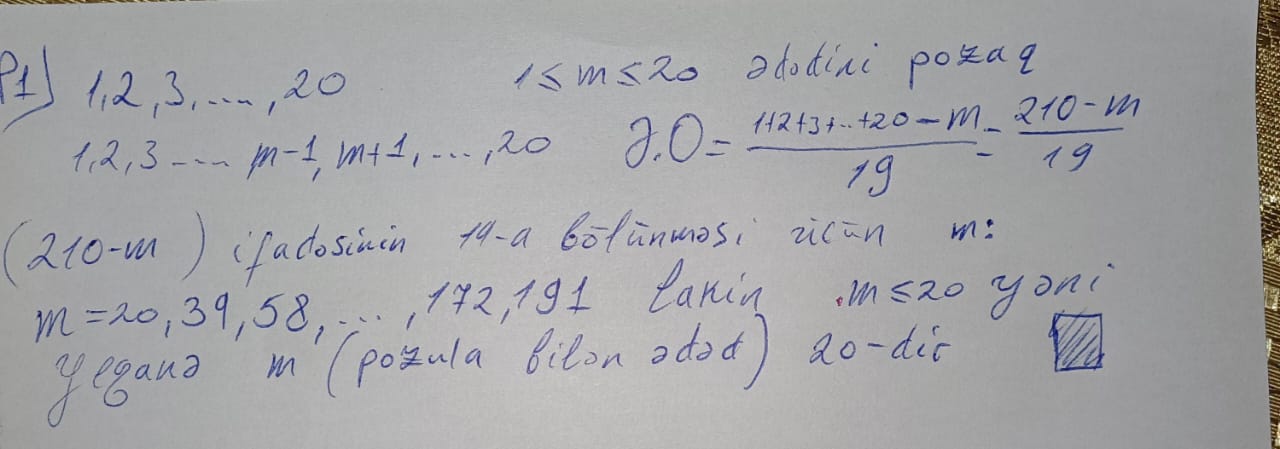 P1) 1,2,3,....,20 1≤m≤20 ədədini pozaq
1,2,3 ---- m-1, m+1, ...,20 Ə.O = (1+2+3+..+20-m)/19 = (210-m)/19
(210-m) ifadəsinin 19-a bölünməsi üçün m:
m=20,39,58,...,172,191 lakin m≤20 yəni
yeganə m (pozula bilən ədəd) 20-dir